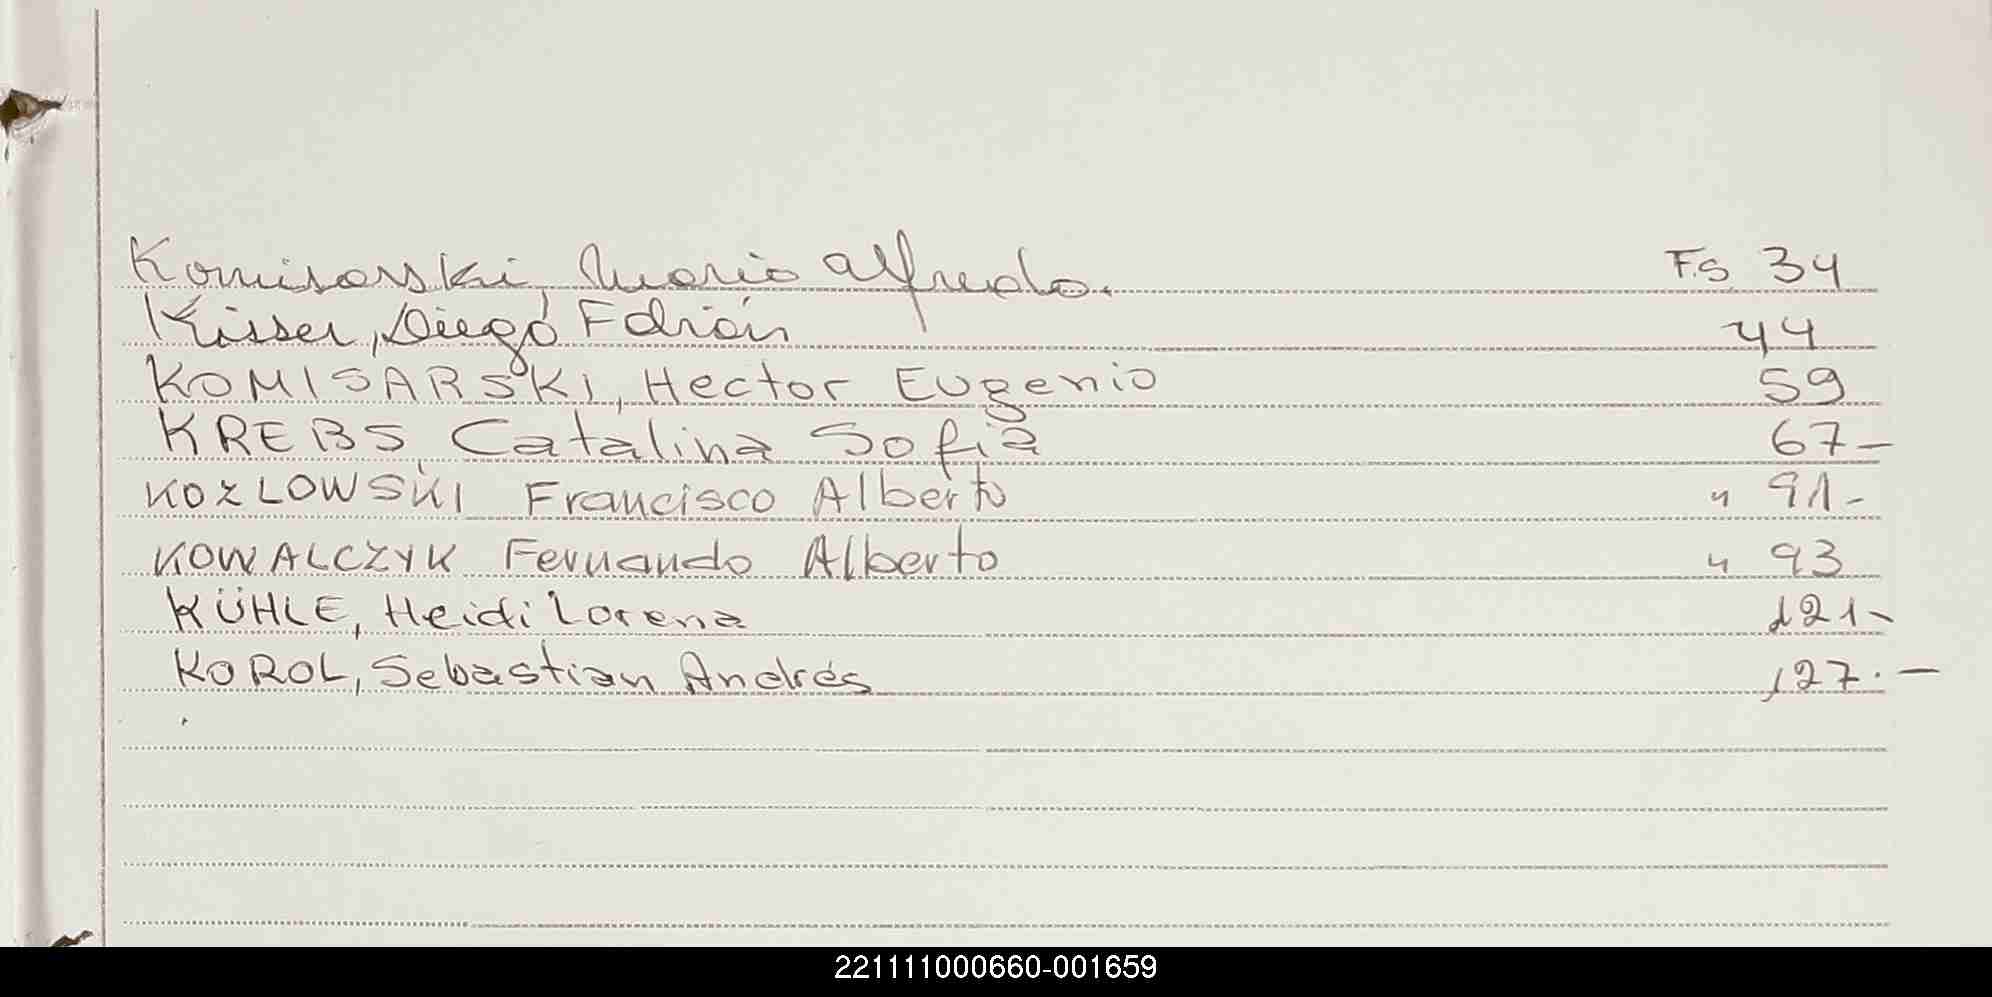 Komisarski, Mario Alfredo. F.S. 34
Kisser, Diego Fabián 44
KOMISARSKI, Hector Eugenio 59
KREBS, Catalina Sofia 67-
KOZLOWSKI Francisco Alberto " 91-
KOWALCZYK Fernando Alberto " 93
KÜHLE, Heidi Lorena 121-
KOROL, Sebastian Andrés 127.-
221111000660-001659